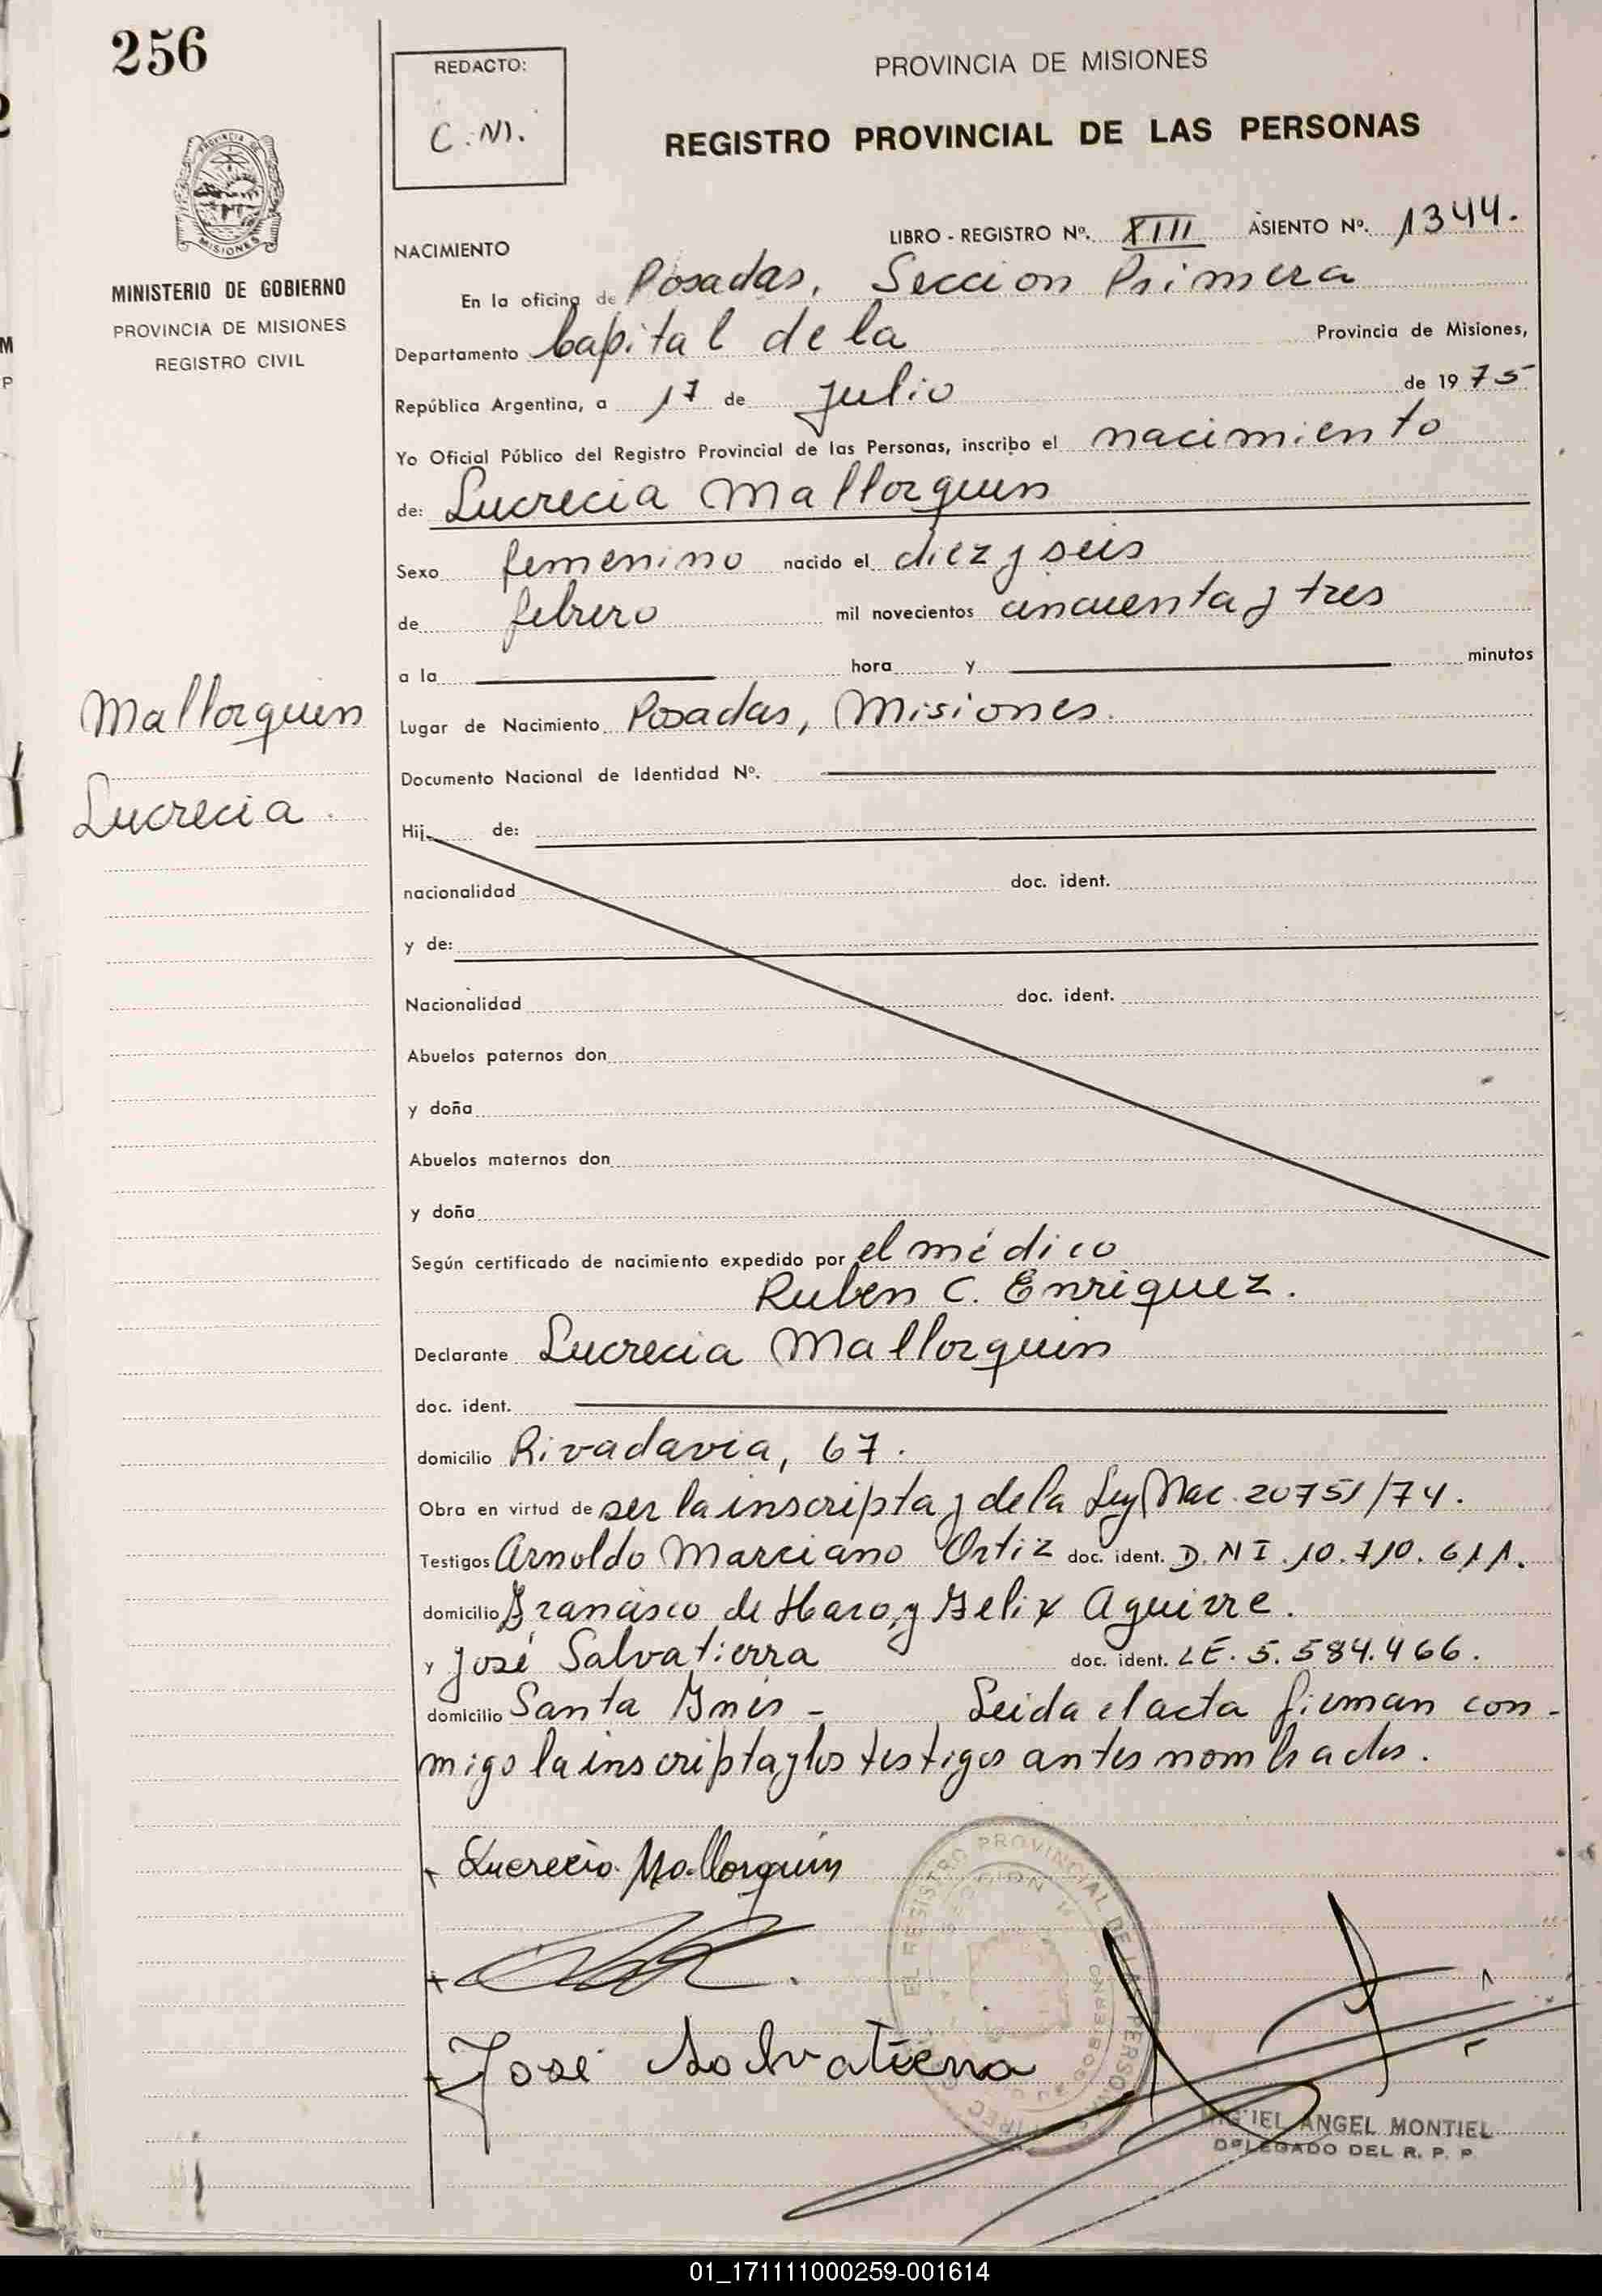 256
REDACTO:
C.M.
PROVINCIA DE MISIONES
REGISTRO PROVINCIAL DE LAS PERSONAS
MISIONES
MINISTERIO DE GOBIERNO
PROVINCIA DE MISIONES
REGISTRO CIVIL
LIBRO - REGISTRO Nº. XIII ASIENTO Nº. 1344.
NACIMIENTO
En la oficina de Posadas, Seccion Primera
Departamento Capital de la Provincia de Misiones,
República Argentina, a 17 de Julio de 1975
Yo Oficial Público del Registro Provincial de las Personas, inscribo el nacimiento
de: Lucrecia Mallorquin
Sexo femenino nacido el diez y seis
de febrero mil novecientos cincuenta y tres
a la hora y minutos
Mallorquin
Lugar de Nacimiento Posadas, Misiones.
Documento Nacional de Identidad Nº.
Lucrecia.
Hij de:
nacionalidad doc. ident.
y de:
Nacionalidad doc. ident.
Abuelos paternos don
y doña
Abuelos maternos don
y doña
Según certificado de nacimiento expedido por el médico
Ruben C. Enriquez.
Declarante Lucrecia Mallorquin
doc. ident.
domicilio Rivadavia, 67.
Obra en virtud de ser la inscripta y de la Ley Nac. 20751/74.
Testigos Arnoldo Marciano Ortiz doc. ident. D.N I. 10.710.611.
domicilio Francisco de Haro y Felix Aguirre.
y José Salvatierra doc. ident. LE. 5.584.466.
domicilio Santa Inés - Leida el acta firman con-
migo la inscripta y los testigos antes nombrados.
Lucrecia Mallorquin
José Salvatierra
MIGUEL ANGEL MONTIEL
DELEGADO DEL R. P. P.
01_171111000259-001614